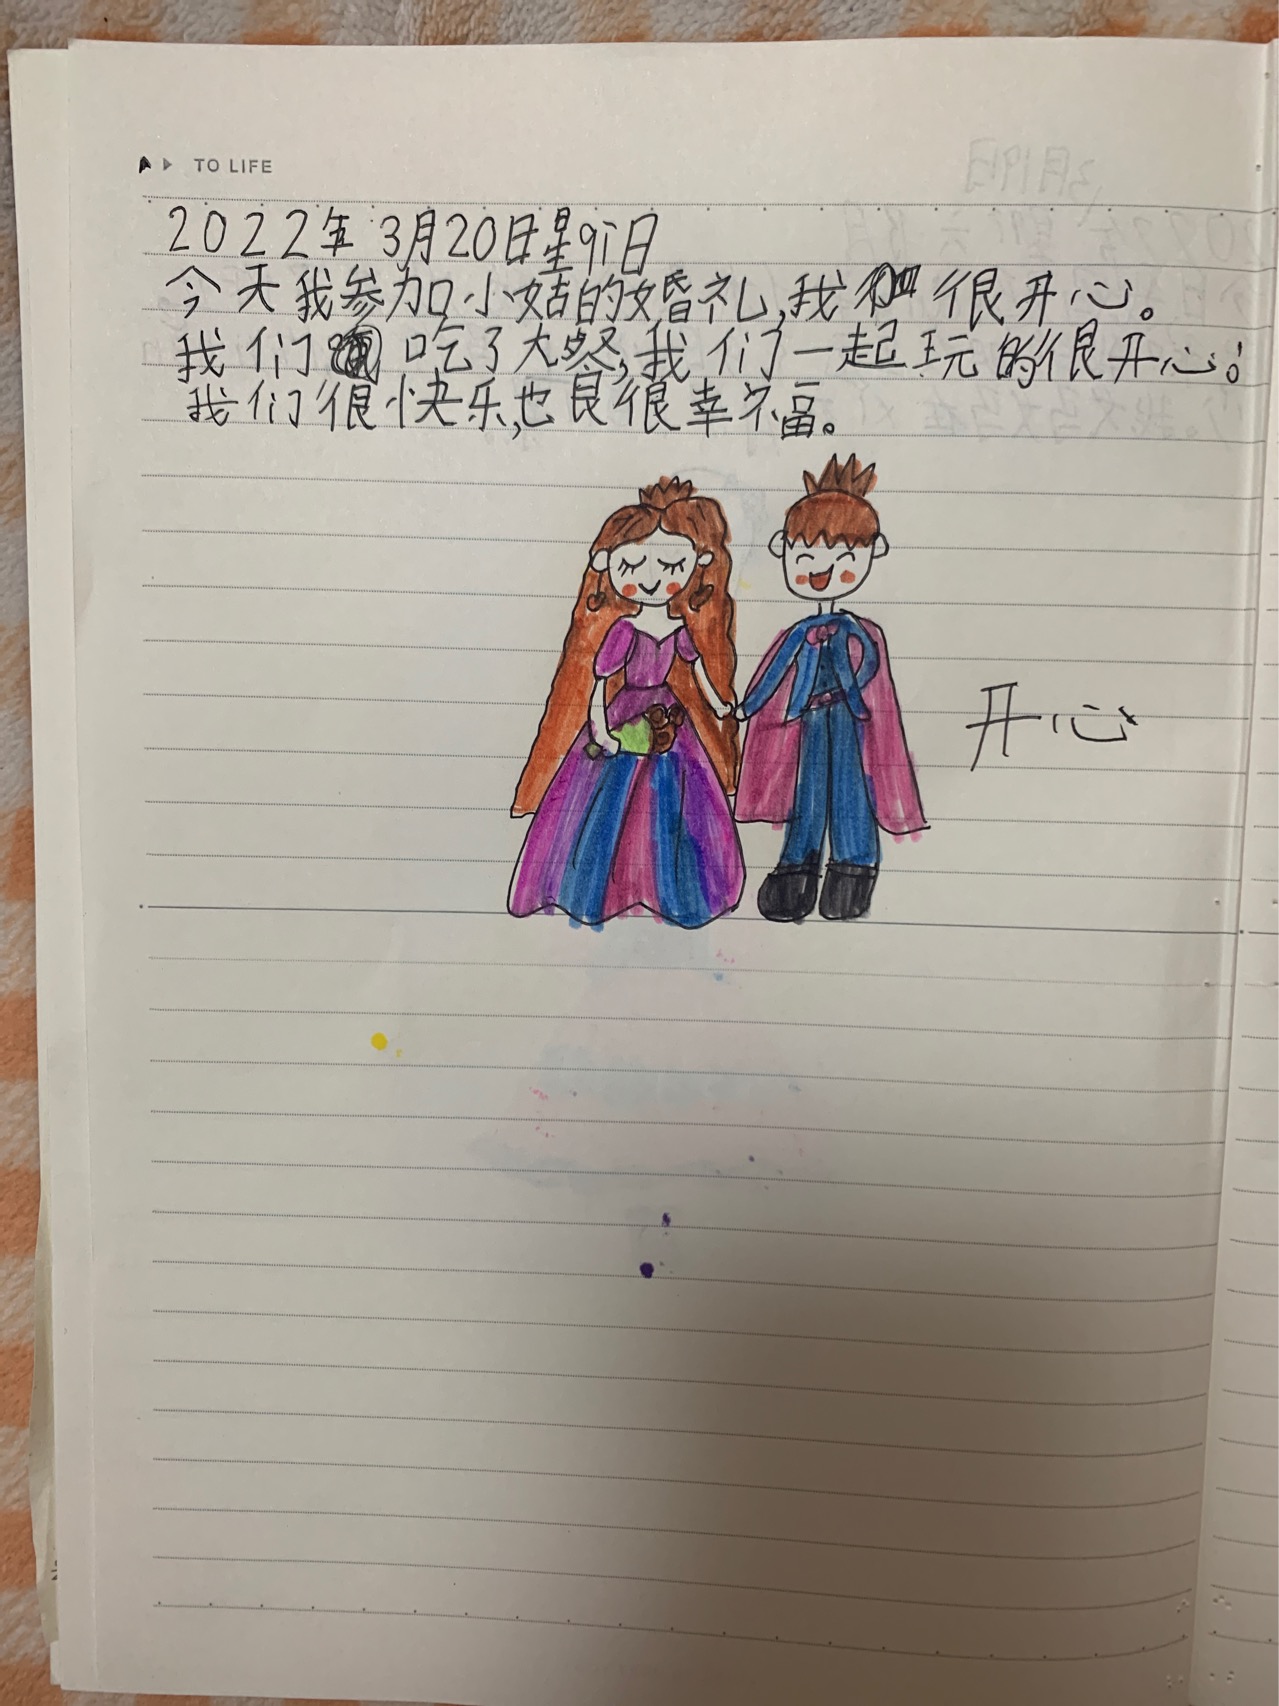 TO LIFE
2022年3月20日星期日
今天我参加小姑的婚礼,我很开心。
我们吃了大餐,我们一起玩的很开心!
我们很快乐,也艮很幸福。
开心